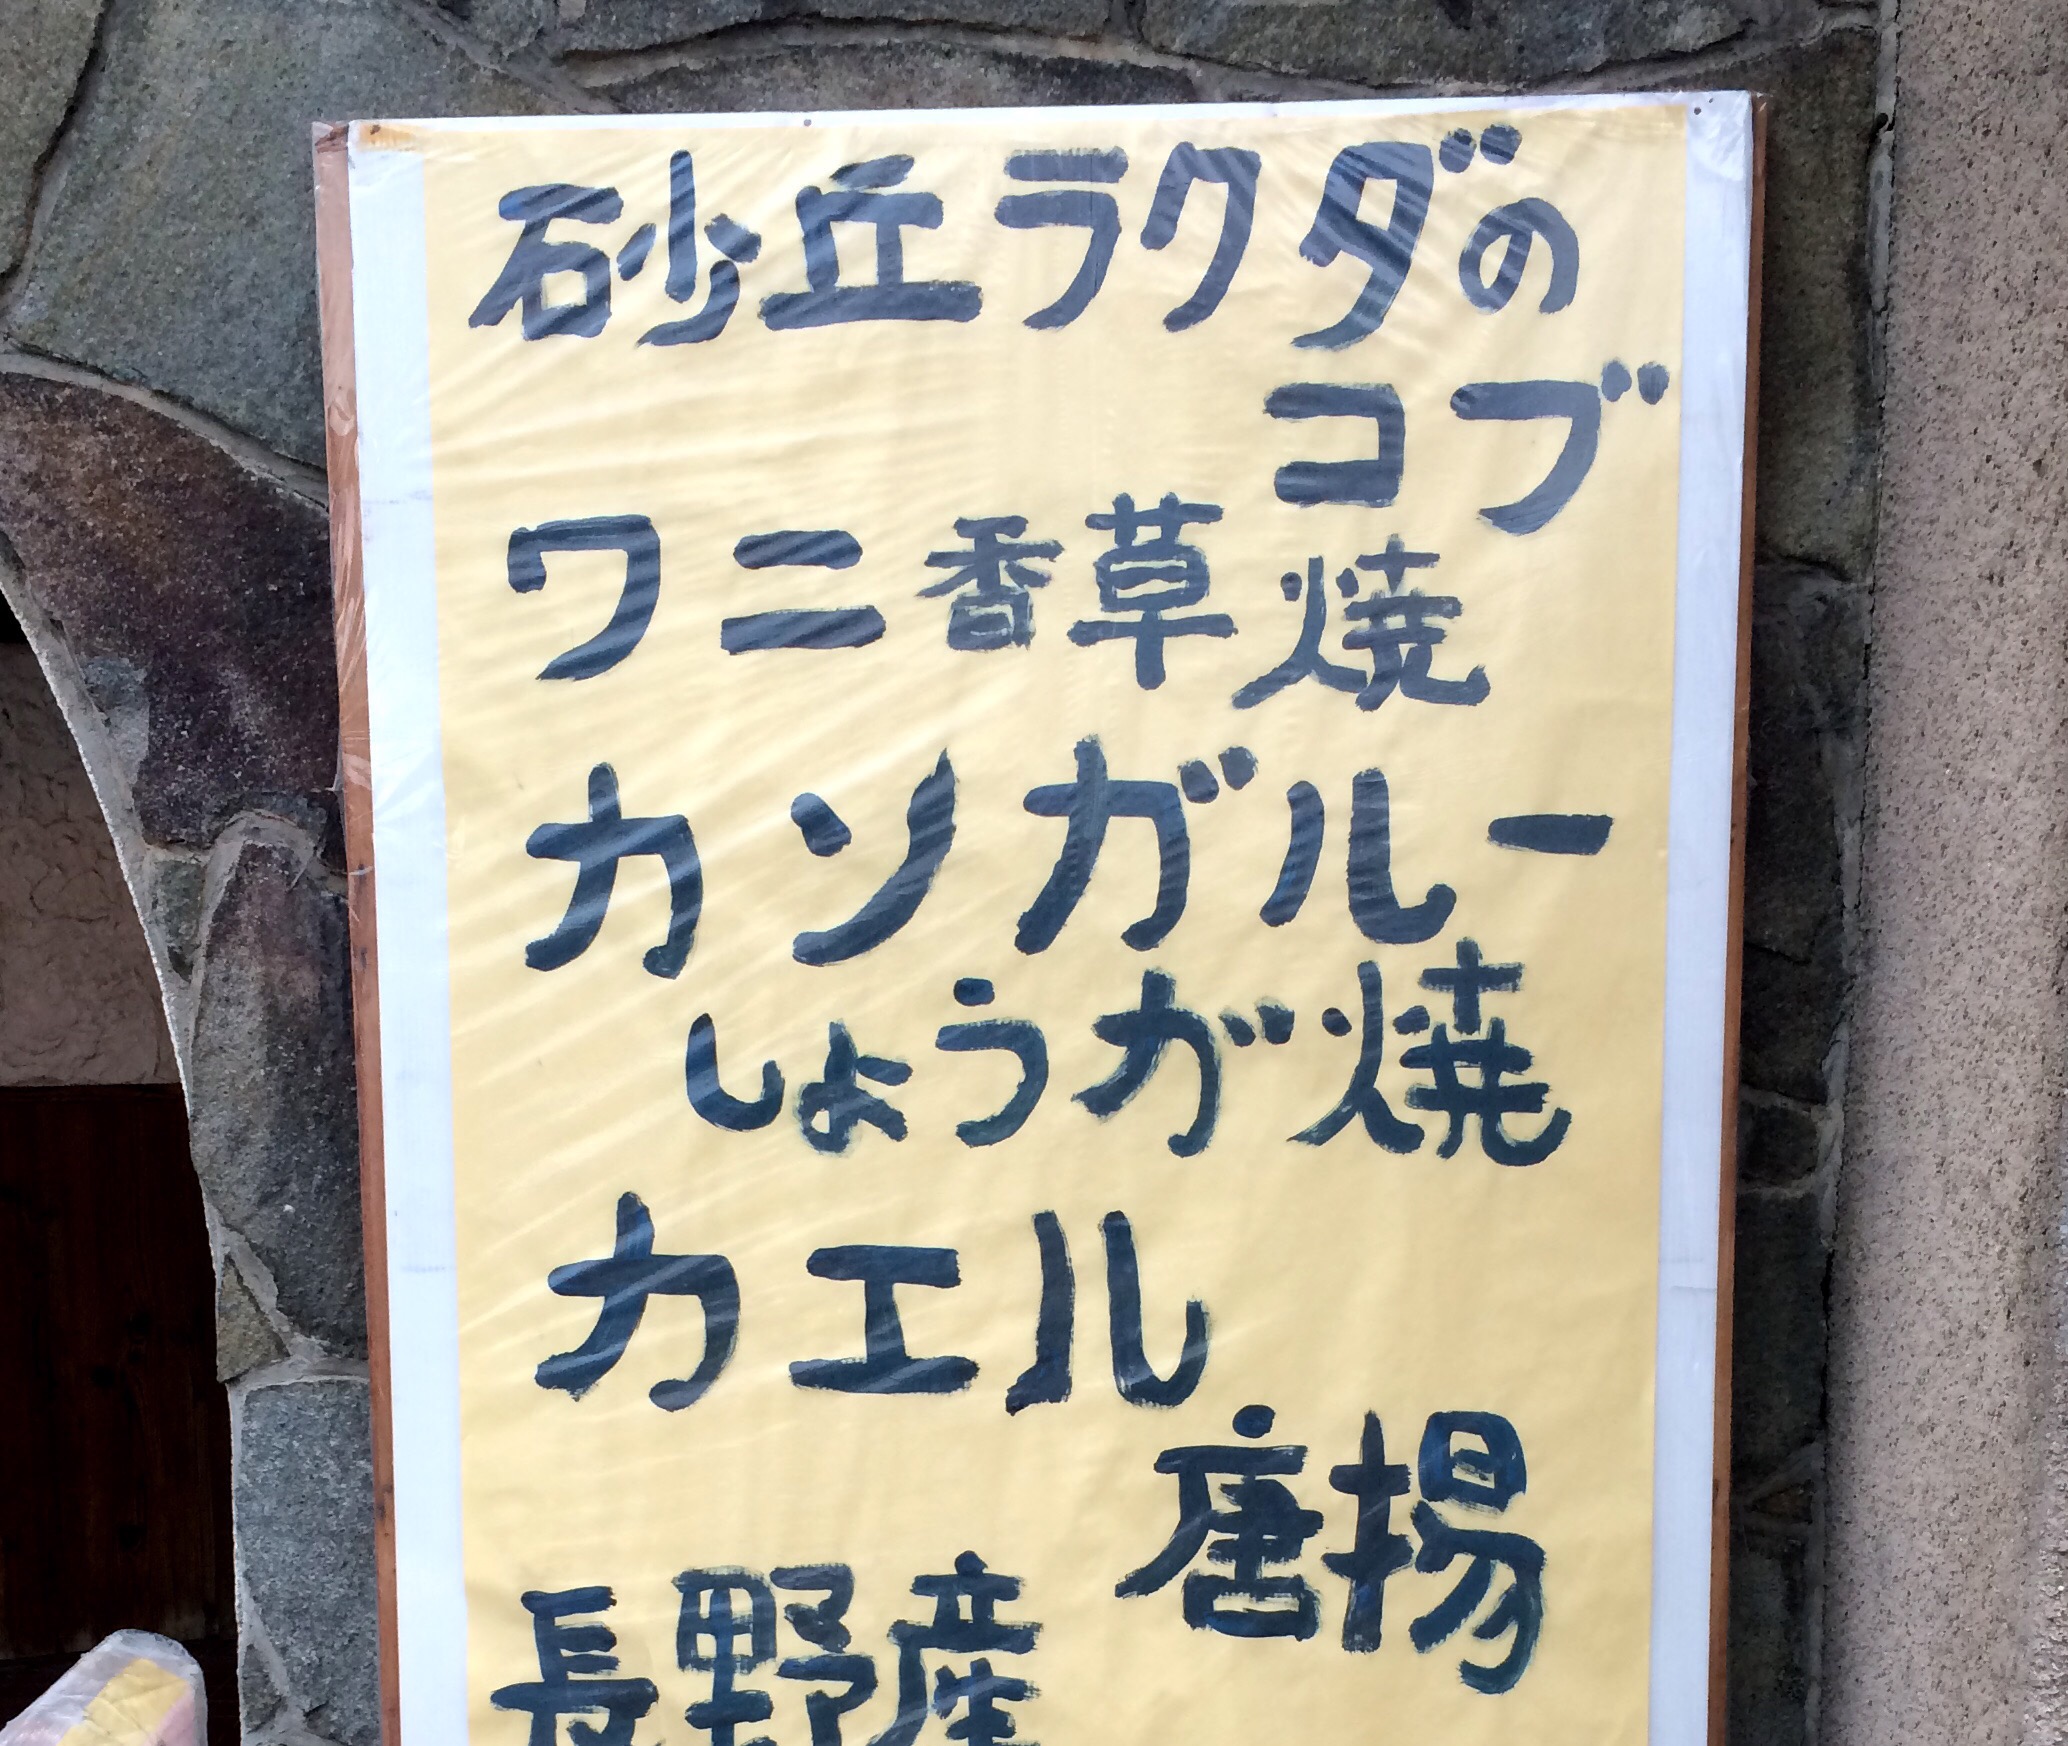 砂丘ラクダの
コブ
ワニ香草焼
カンガルー
しょうが焼
カエル
唐揚
長野産